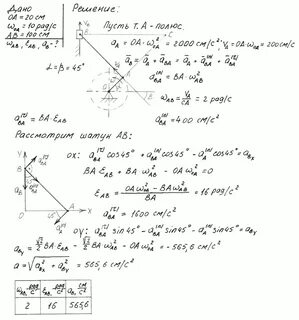 Дано
Решение:
OA = 20 cm
ω_OA = 10 рад/с
AB = 100 cm
ω_AB, ε_AB, a_B - ?
Пусть т. A - полюс.
a_A = OA·ω²_OA = 2000 см/с²; V_A = OA·ω_OA = 200 см/с
ā_B = ā_A + ā_BA = ā_A + ā_BA^(n) + ā_BA^(τ)
a_BA^(n) = BA·ω²_AB
α = β = 45°
ω_AB = V_A/CA = 2 рад/с
a_BA^(τ) = BA·ε_AB
a_BA^(n) = 400 см/с²
Рассмотрим шатун AB:
OX: a_BA^(τ) cos45° + a_BA^(n) cos45° - a_A^(n) cos45° = a_BX
BA ε_AB + BA ω²_AB - OA ω²_OA = 0
ε_AB = (OA ω²_OA - BA ω²_AB)/BA = 16 рад/с²
a_BA^(τ) = 1600 см/с²
OY: a_BA^(τ) sin45° - a_BA^(n) sin45° - a_A^(n) sin45° = a_BY
a_BY = √2/2 BA ε_AB - √2/2 BA ω²_AB - OA ω²_OA = -565,6 см/с²
a = √(a²_BX + a²_BY) = 565,6 см/с²
ω_AB, рад/с ε_AB, рад/с² a_B, см/с²
2 16 565,6